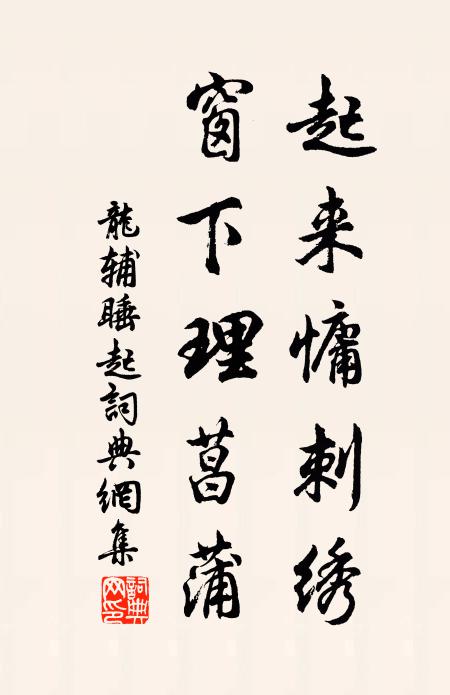 起来慵刺绣
窗下理菖蒲
龍辅睡起詞典網集
詞典網印